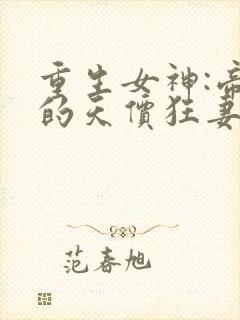 重生女神:帝
的天價狂妻
范春旭